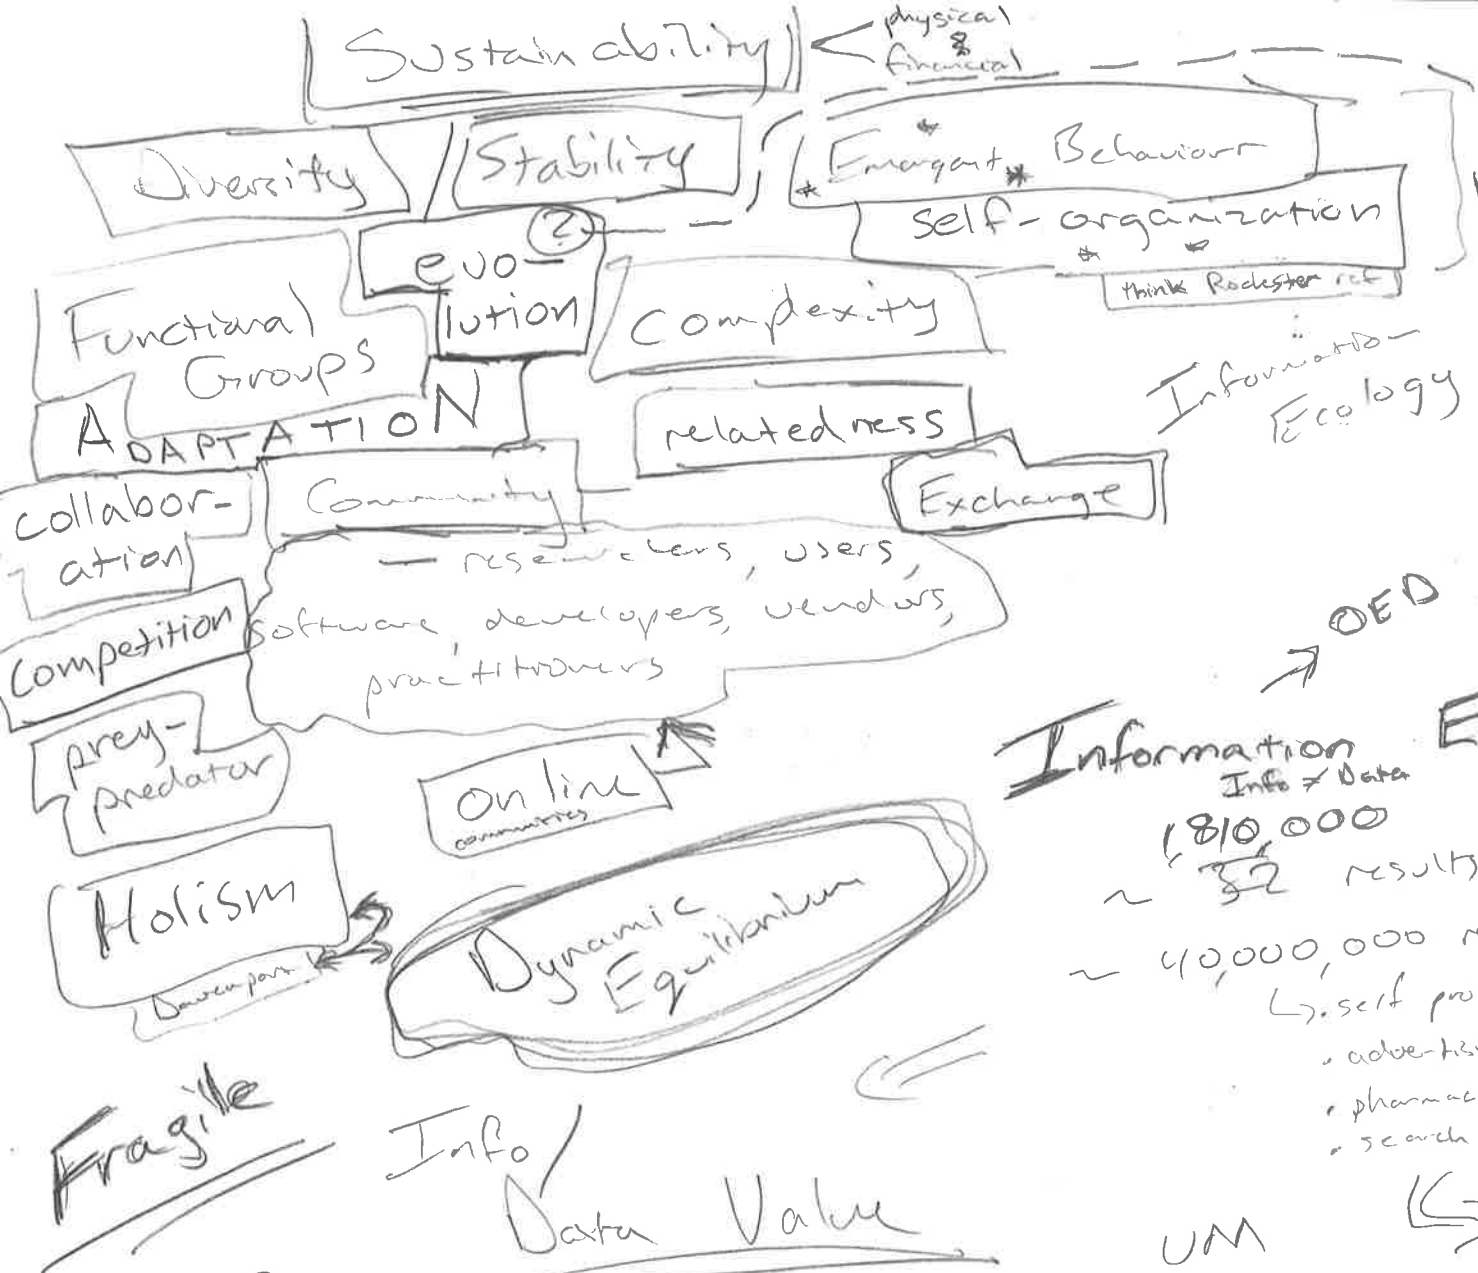 Sustainability
physical
&
financial
Diversity
Stability
Emergent Behaviour
self-organization
think Rochester ref
evo-
lution
?
Functional
Groups
Complexity
Information
Ecology
ADAPTATION
relatedness
Exchange
collabor-
ation
Community
— researchers, users,
software, developers, vendors,
practitioners
Competition
prey-
predator
online
communities
OED
Information E
Info ≠ Data
1,810,000
~ 32 results
~ 40,000,000
↳ • self pro
• advertis
• pharmac
• search
Holism
Davenport
Dynamic
Equilibrium
Fragile
Info/
Data Value
UM